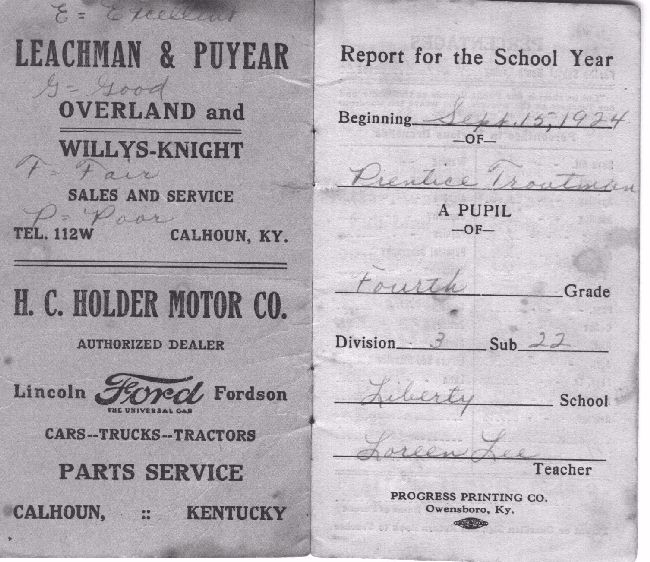 E = Excellent
LEACHMAN & PUYEAR
G = Good
OVERLAND and
WILLYS-KNIGHT
F = Fair
SALES AND SERVICE
P = Poor
TEL. 112W CALHOUN, KY.
H. C. HOLDER MOTOR CO.
AUTHORIZED DEALER
Lincoln Ford Fordson
THE UNIVERSAL CAR
CARS--TRUCKS--TRACTORS
PARTS SERVICE
CALHOUN, :: KENTUCKY
Report for the School Year
Beginning Sept. 15, 1924
—OF—
Prentice Troutman
A PUPIL
—OF—
Fourth Grade
Division 3 Sub 22
Liberty School
Loreen Lee
Teacher
PROGRESS PRINTING CO.
Owensboro, Ky.